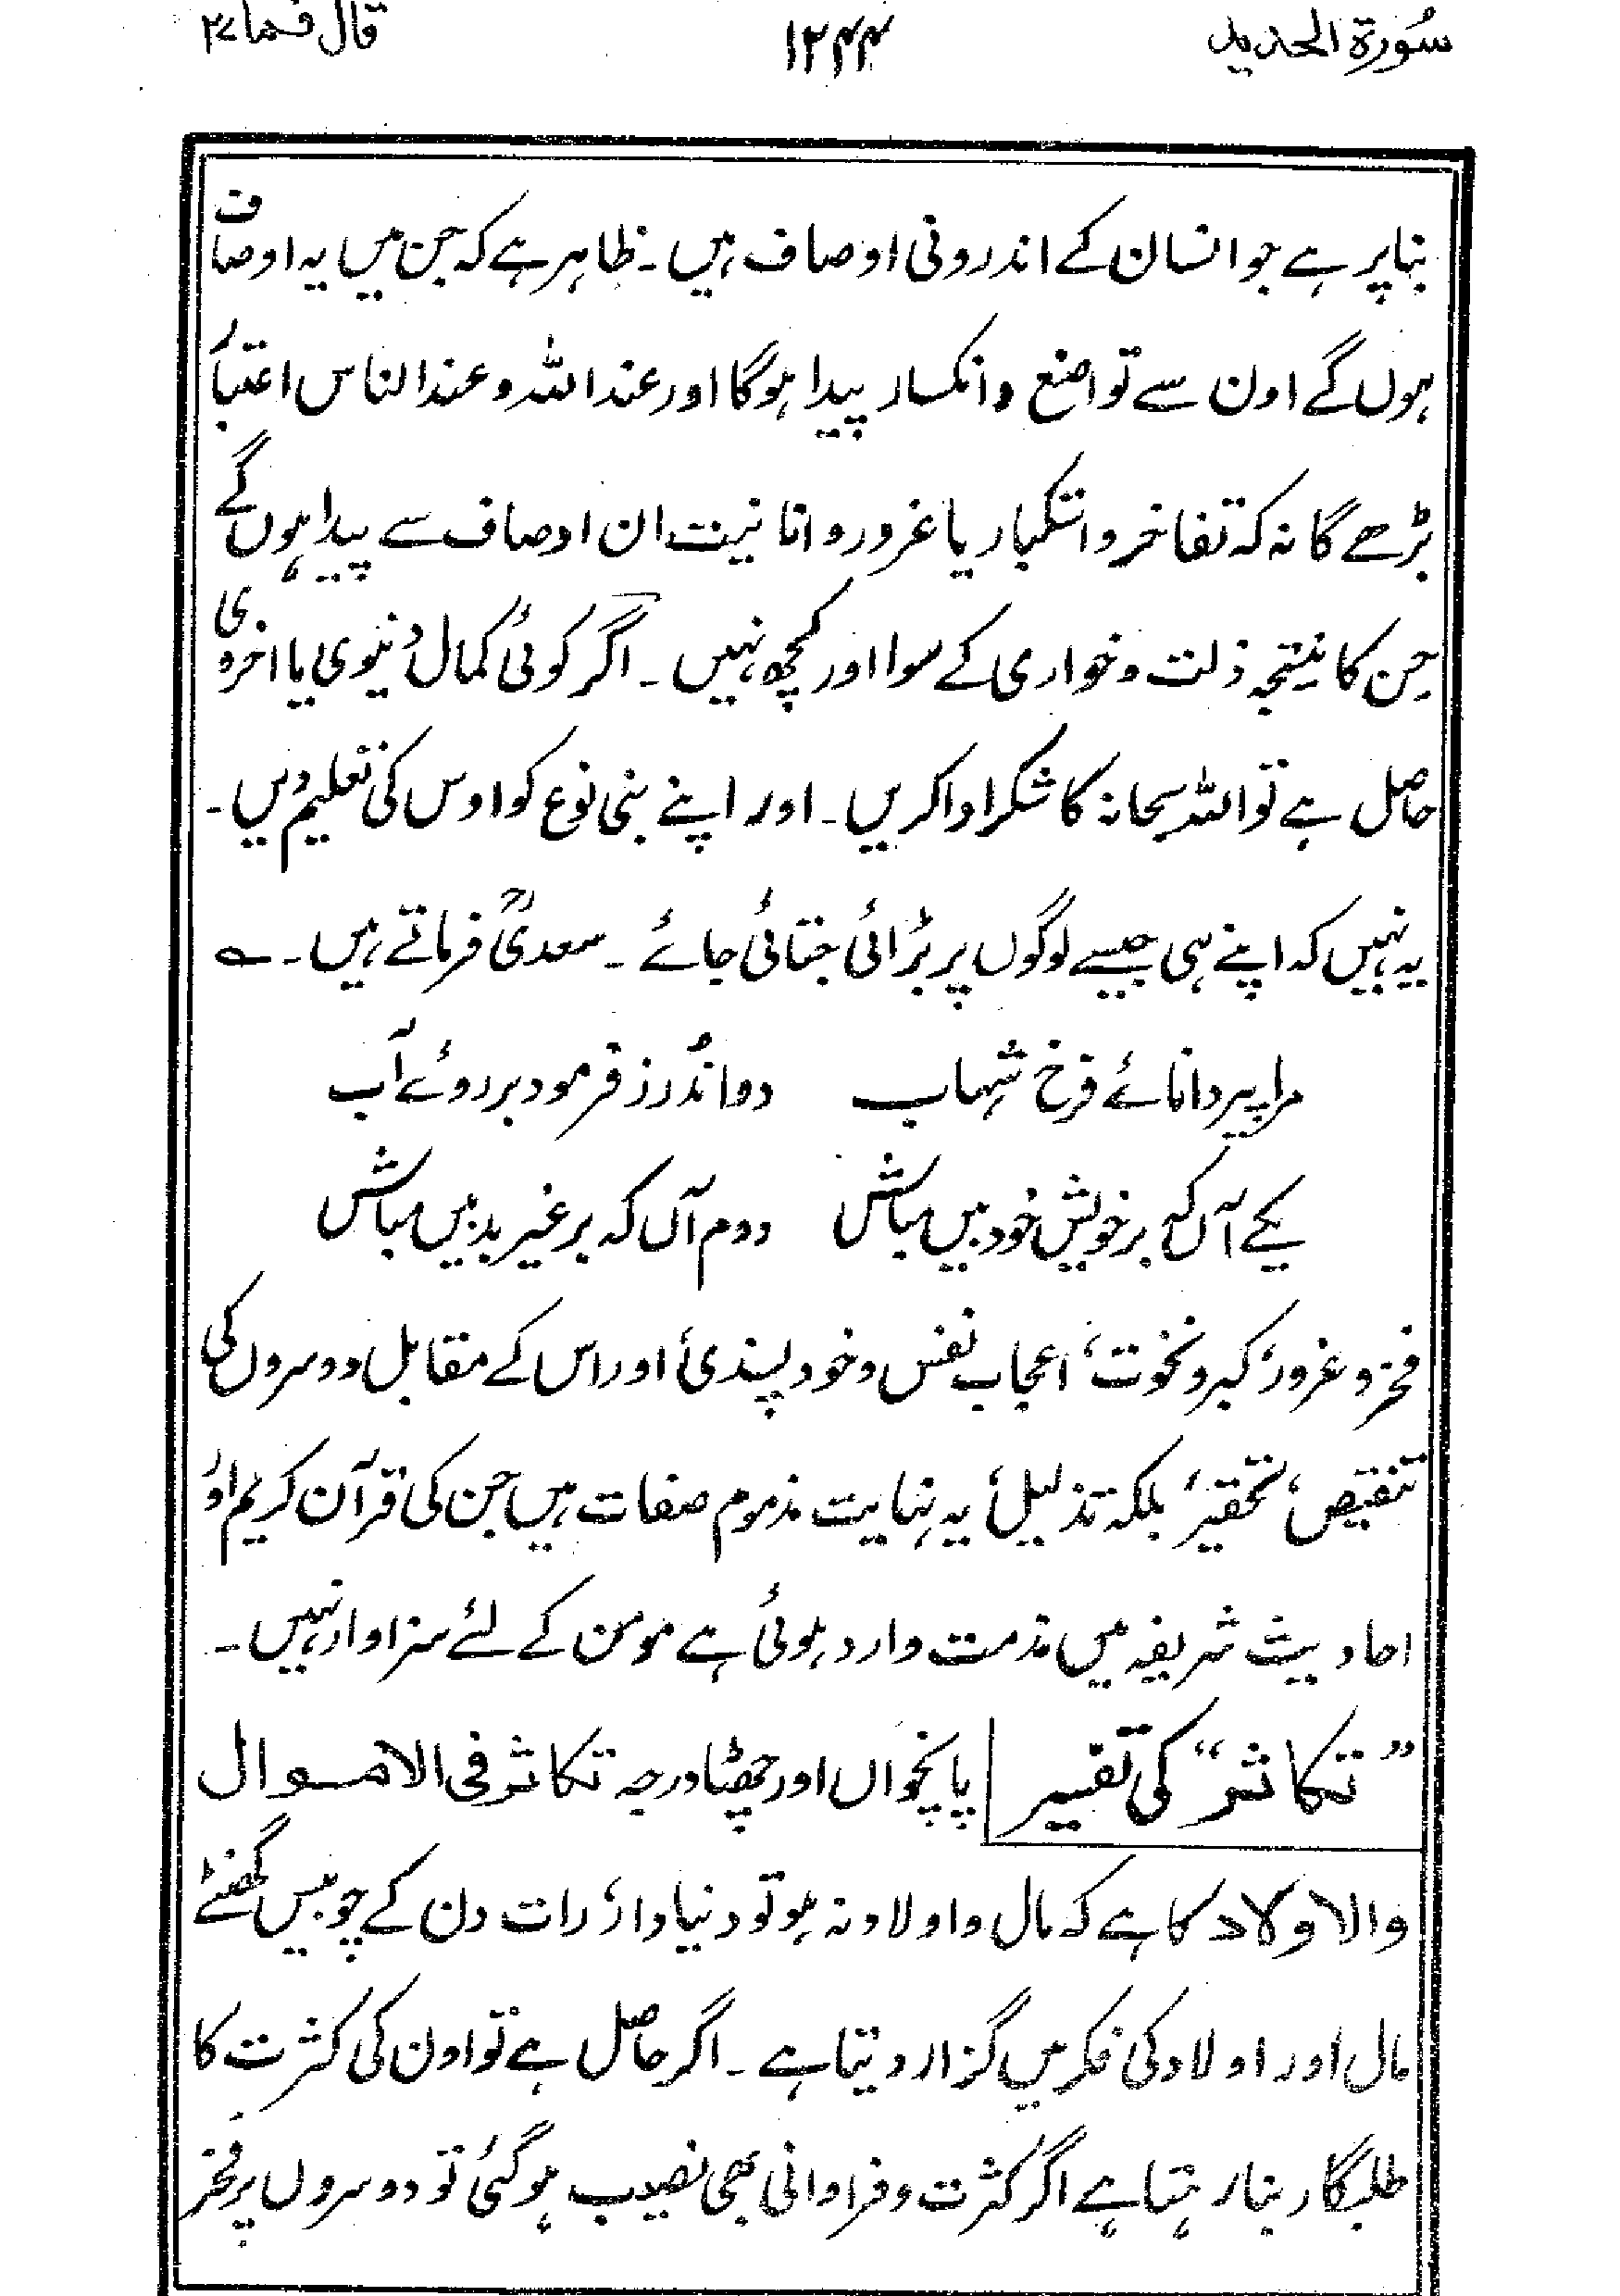 سُورۃ الحدید ۱۲۴۴ قال فما ۲۷
بنا پر ہے جو انسان کے اندرونی اوصاف ہیں۔ ظاہر ہے کہ جن میں یہ اوصاف
ہوں گے اون سے تواضع و انکسار پیدا ہوگا اور عند اللہ و عند الناس اعتبار
بڑھے گا نہ کہ تفاخر و استکبار یا غرور و انانیت ان اوصاف سے پیدا ہوں گے
جن کا نتیجہ ذلت و خواری کے سوا اور کچھ نہیں۔ اگر کوئی کمال دُنیوی یا اخروی
حاصل ہے تو اللہ سبحانہ کا شکر ادا کریں۔ اور اپنے بنی نوع کو اوس کی تعلیم دیں۔
یہ نہیں کہ اپنے ہی جیسے لوگوں پر بڑائی جتائی جائے۔ سعدیؒ فرماتے ہیں۔ ؎
مرا پیر دانائے فرخ شہاب دو اندرز فرمود بر روئے آب
یکے آں کہ بر خویش خود بیں مباش دوم آں کہ بر غیر بد بیں مباش
فخر و غرور، کبر و نخوت، اعجاب نفس و خود پسندی، اور اس کے مقابل دوسروں کی
تنقیص، تحقیر، بلکہ تذلیل، یہ نہایت مذموم صفات ہیں جن کی قرآن کریم اور
احادیث شریفہ میں مذمت وارد ہوئی ہے مومن کے لئے سزاوار نہیں۔
”تکاثر“ کی تفسیر پانچواں اور چھٹا درجہ تکاثر فی الاموال
والاولاد کا ہے کہ مال و اولاد نہ ہو تو دنیا دار، رات دن کے چوبیس گھنٹے
مال اور اولاد کی فکر میں گزار دیتا ہے۔ اگر حاصل ہے تو اون کی کثرت کا
طلبگار بنا رہتا ہے اگر کثرت و فراوانی بھی نصیب ہو گئی تو دوسروں پر فخر